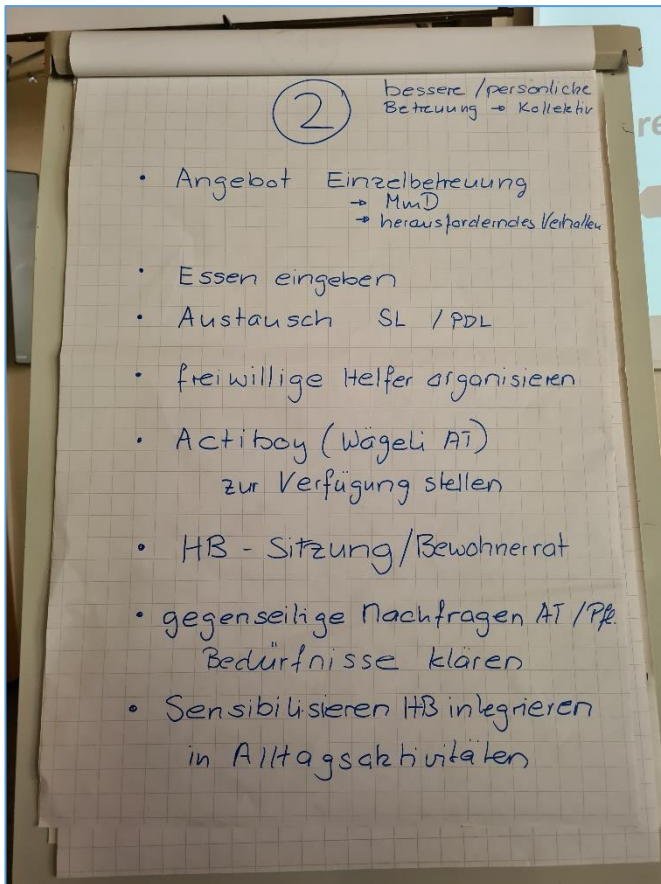 2
bessere / persönliche
Betreuung → Kollektiv
• Angebot Einzelbetreuung
→ MmD
→ herausforderndes Verhalten
• Essen eingeben
• Austausch SL / PDL
• freiwillige Helfer organisieren
• Actiboy (Wägeli AT)
zur Verfügung stellen
• HB - Sitzung/Bewohnerrat
• gegenseitige Nachfragen AT / Pfl.
Bedürfnisse klären
• Sensibilisieren HB integrieren
in Alltagsaktivitäten